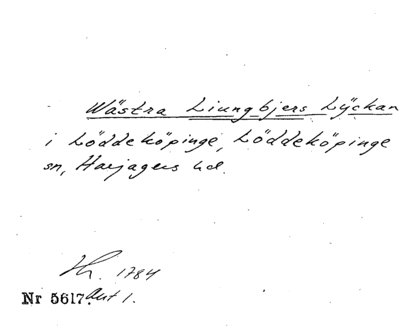 Wästra Liungbjers Lÿckan
i Löddeköpinge, Löddeköpinge
sn, Harjagers hd.
Th. 1784
Nr 5617. Art 1.